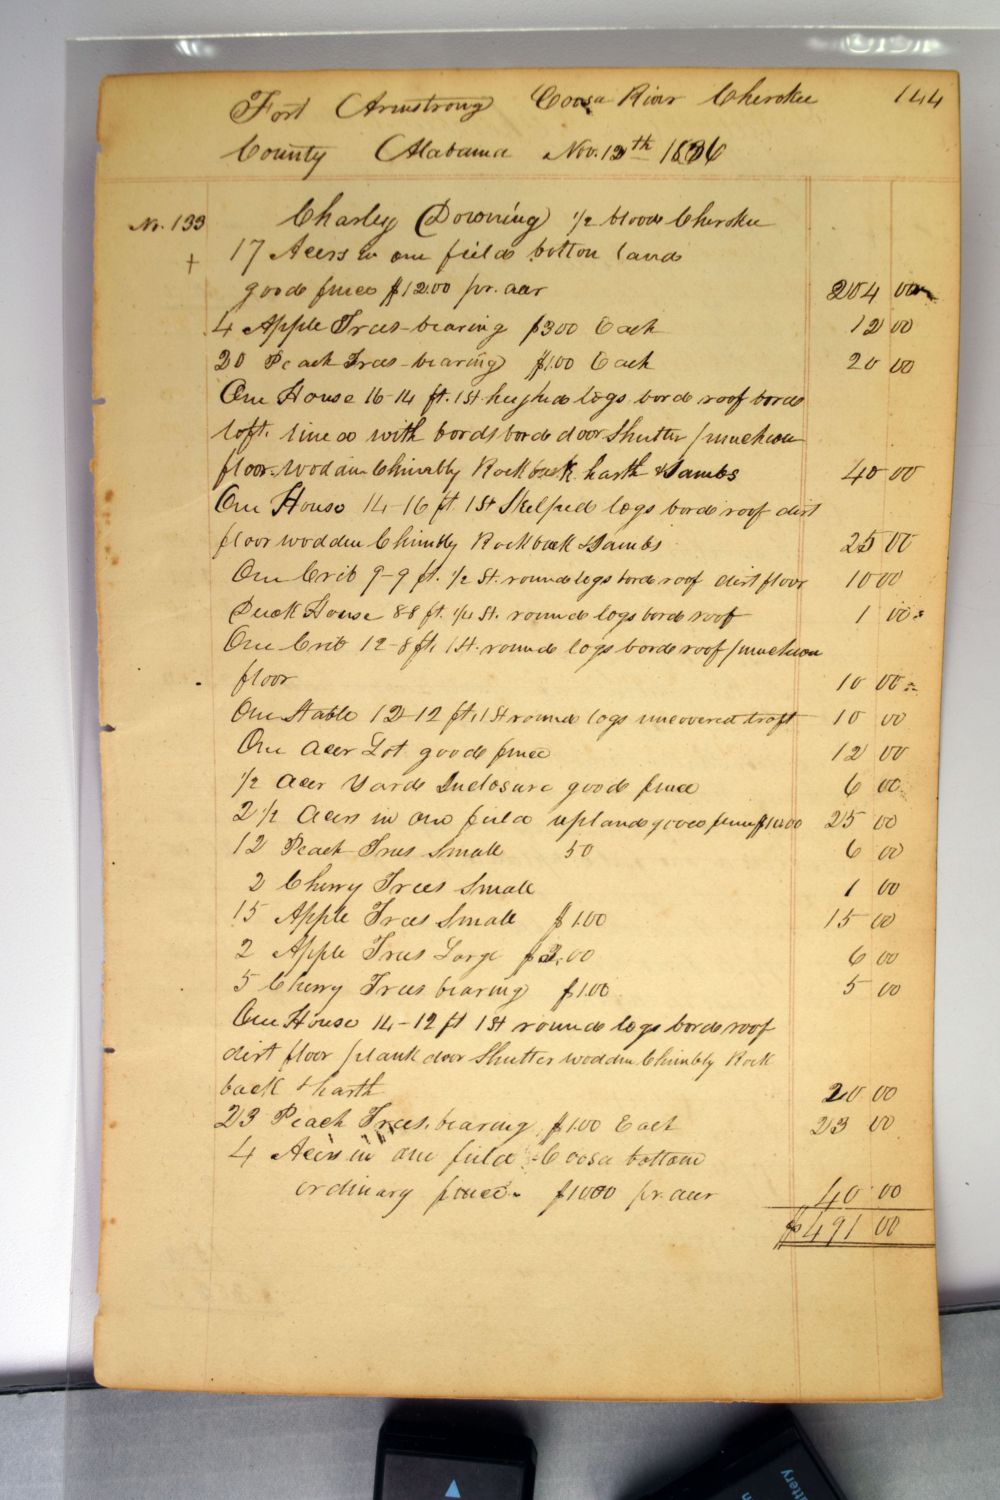 144
Fort Armstrong Coosa River Cherokee
County Alabama Nov. 12th 1836
No. 133 Charley Downing 1/2 blood Cherokee
+ 17 Acers in one field bottom land
good fence $12.00 pr. acer 204 00
4 Apple Trees - bearing $3.00 Each 12 00
20 Peach Trees - bearing $1.00 Each 20 00
One House 16-14 ft. 1 St hughed logs bord roof bord
loft. lined with bords bord door Shutter puncheon
floor - wooden Chimbly Rock back harth & Jambs 40 00
One House 14-16 ft. 1 St Skelped logs bord roof dirt
floor wodden Chimbly Rock back & Jambs 25 00
One Crib 9-9 ft. 1/2 St. round logs bord roof dirt floor 10 00
Duck House 8-8 ft. 1/4 St. round logs bord roof 1 00
One Crib 12-8 ft. 1 St. round logs bord roof puncheon
floor 10 00
One Stable 12-12 ft. 1 St round logs uncovered troft 10 00
One acer Lot good fence 12 00
1/2 Acer Yard Inclosure good fence 6 00
2 1/2 Acers in one field upland good fence $10.00 25 00
12 Peach Trees Small 50 6 00
2 Cherry Trees Small 1 00
15 Apple Trees Small $1.00 15 00
2 Apple Trees Large $3.00 6 00
5 Cherry Trees bearing $1.00 5 00
One House 14-12 ft 1 St round logs bord roof
dirt floor plank door Shutter wodden Chimbly Rock
back & harth 20 00
23 Peach Trees. bearing $1.00 Each 23 00
4 Acers in one field Coosa bottom
ordinary fence. $10.00 pr. acer 40 00
$491 00